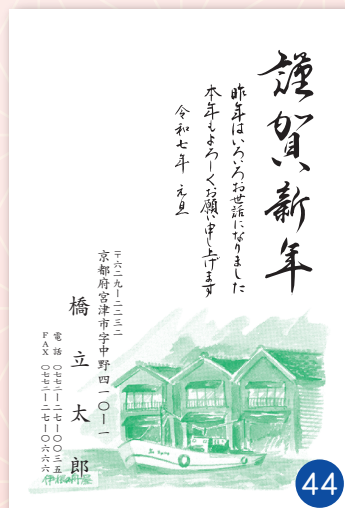 謹賀新年
昨年はいろいろお世話になりました
本年もよろしくお願い申し上げます
令和七年 元旦
〒六二九ー二二三二
京都府宮津市字中野四一〇ー一
橋立太郎
電話 〇七七二ー二七ー〇〇三五
FAX 〇七七二ー二七ー〇六六六
伊根の舟屋
44